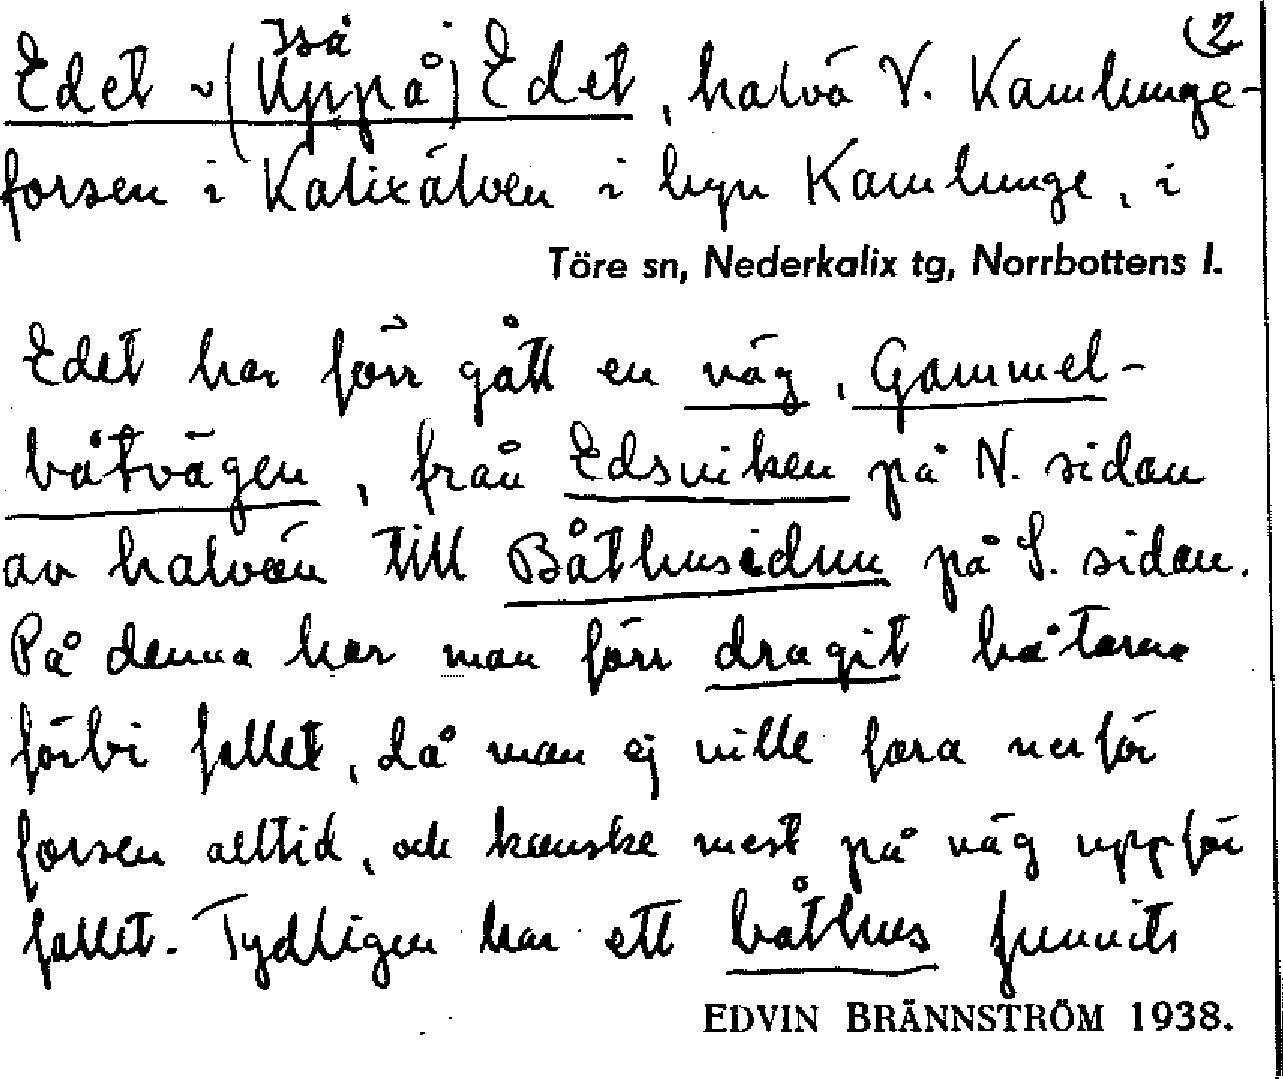 (2
Iså
Edet ~ (Uppå) Edet, halvö V. Kamlunge-
forsen i Kalixälven i byn Kamlunge, i
Töre sn, Nederkalix tg, Norrbottens l.
Edet har förr gått en väg, Gammel-
båtvägen, från Edsviken på N. sidan
av halvön till Båthusidun på S. sidan.
På denna har man förr dragit båtarna
förbi fallet, då man ej ville fara nerför
forsen alltid, och kanske mest på väg uppför
fallet. Tydligen har ett båthus funnits
EDVIN BRÄNNSTRÖM 1938.